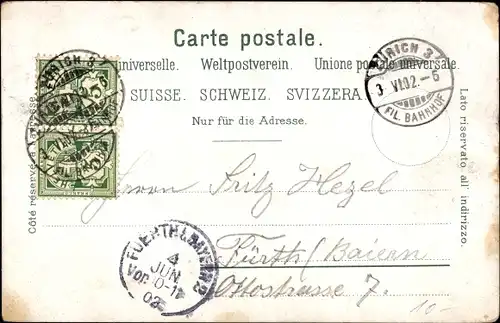 Carte postale.
universelle. Weltpostverein. Unione postale universale.
SUISSE. SCHWEIZ. SVIZZERA.
Nur für die Adresse.
Côté réservé à l'adresse.
Lato riservato all' indirizzo.
ZÜRICH 3
VI.02.-6
FIL. BAHNHOF
ZÜRICH 3
Herrn Fritz Hezel
Fürth / Baiern
Ottostrasse 7.
FUERTH (BAYERN) 2
4
JUN.
Vor.
02
10-